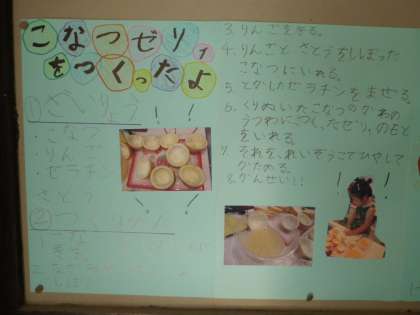 こなつゼリー
をつくったよ
①ざいりょう
・こなつ
・りんご
・ゼラチン
・さとう
②つくりかた
1. こなつ
2. なか
しぼ
3. りんごをきる。
4. りんごと さとうをしぼった
こなつにいれる。
5. とかしたゼラチンをまぜる。
6. くりぬいたこなつのかわの
うつわにつくったゼリーのもと
をいれる。
7. それを、れいぞうこでひやして
かためる。
8. かんせい!!